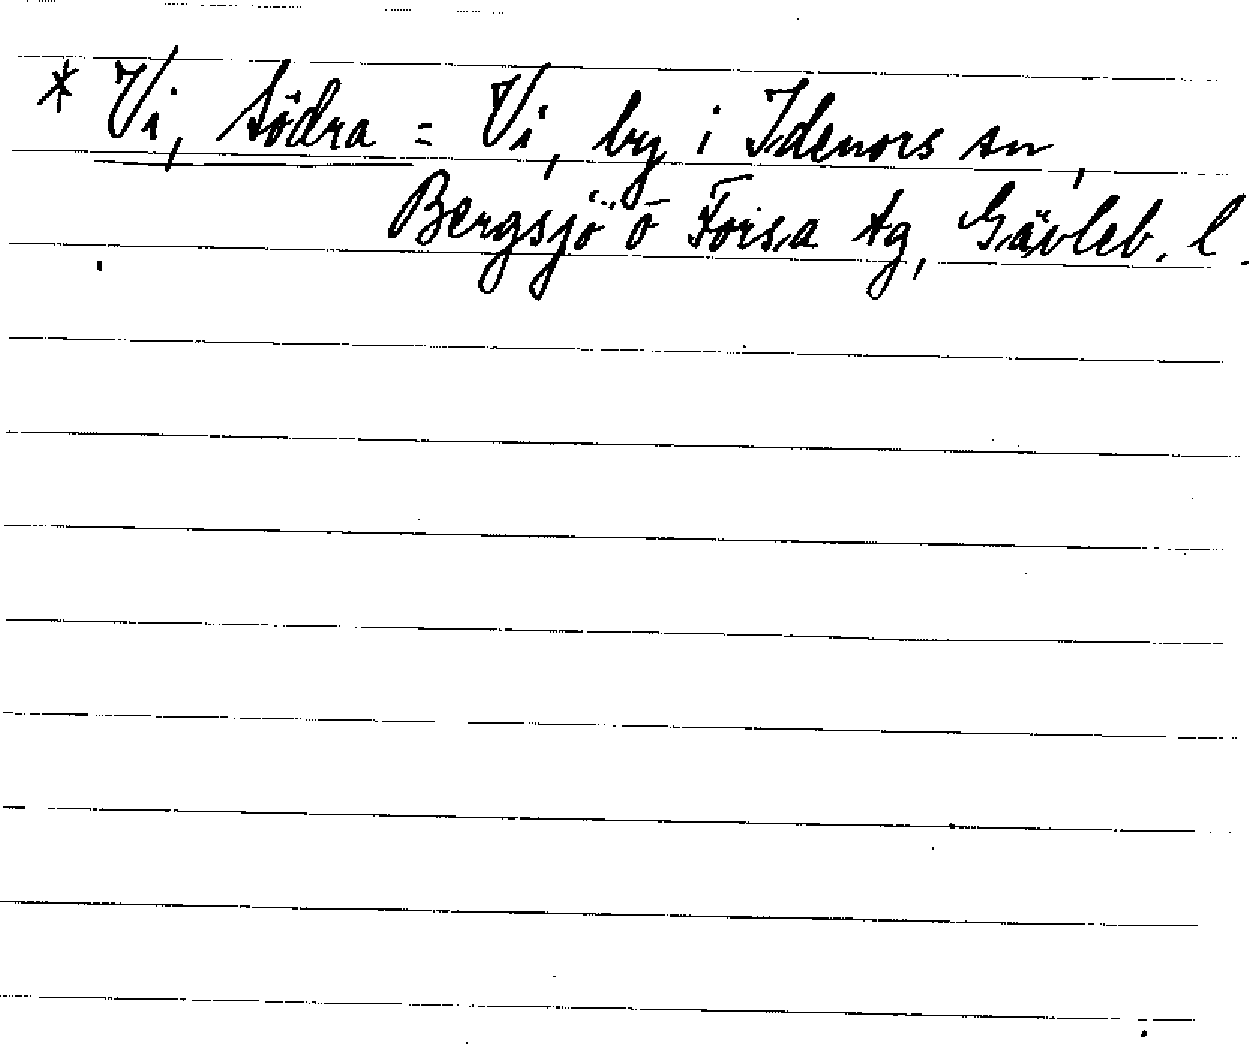 * Vi, Södra = Vi, by i Idenors sn,
Bergsjö o Forsa tg, Gävleb. l.